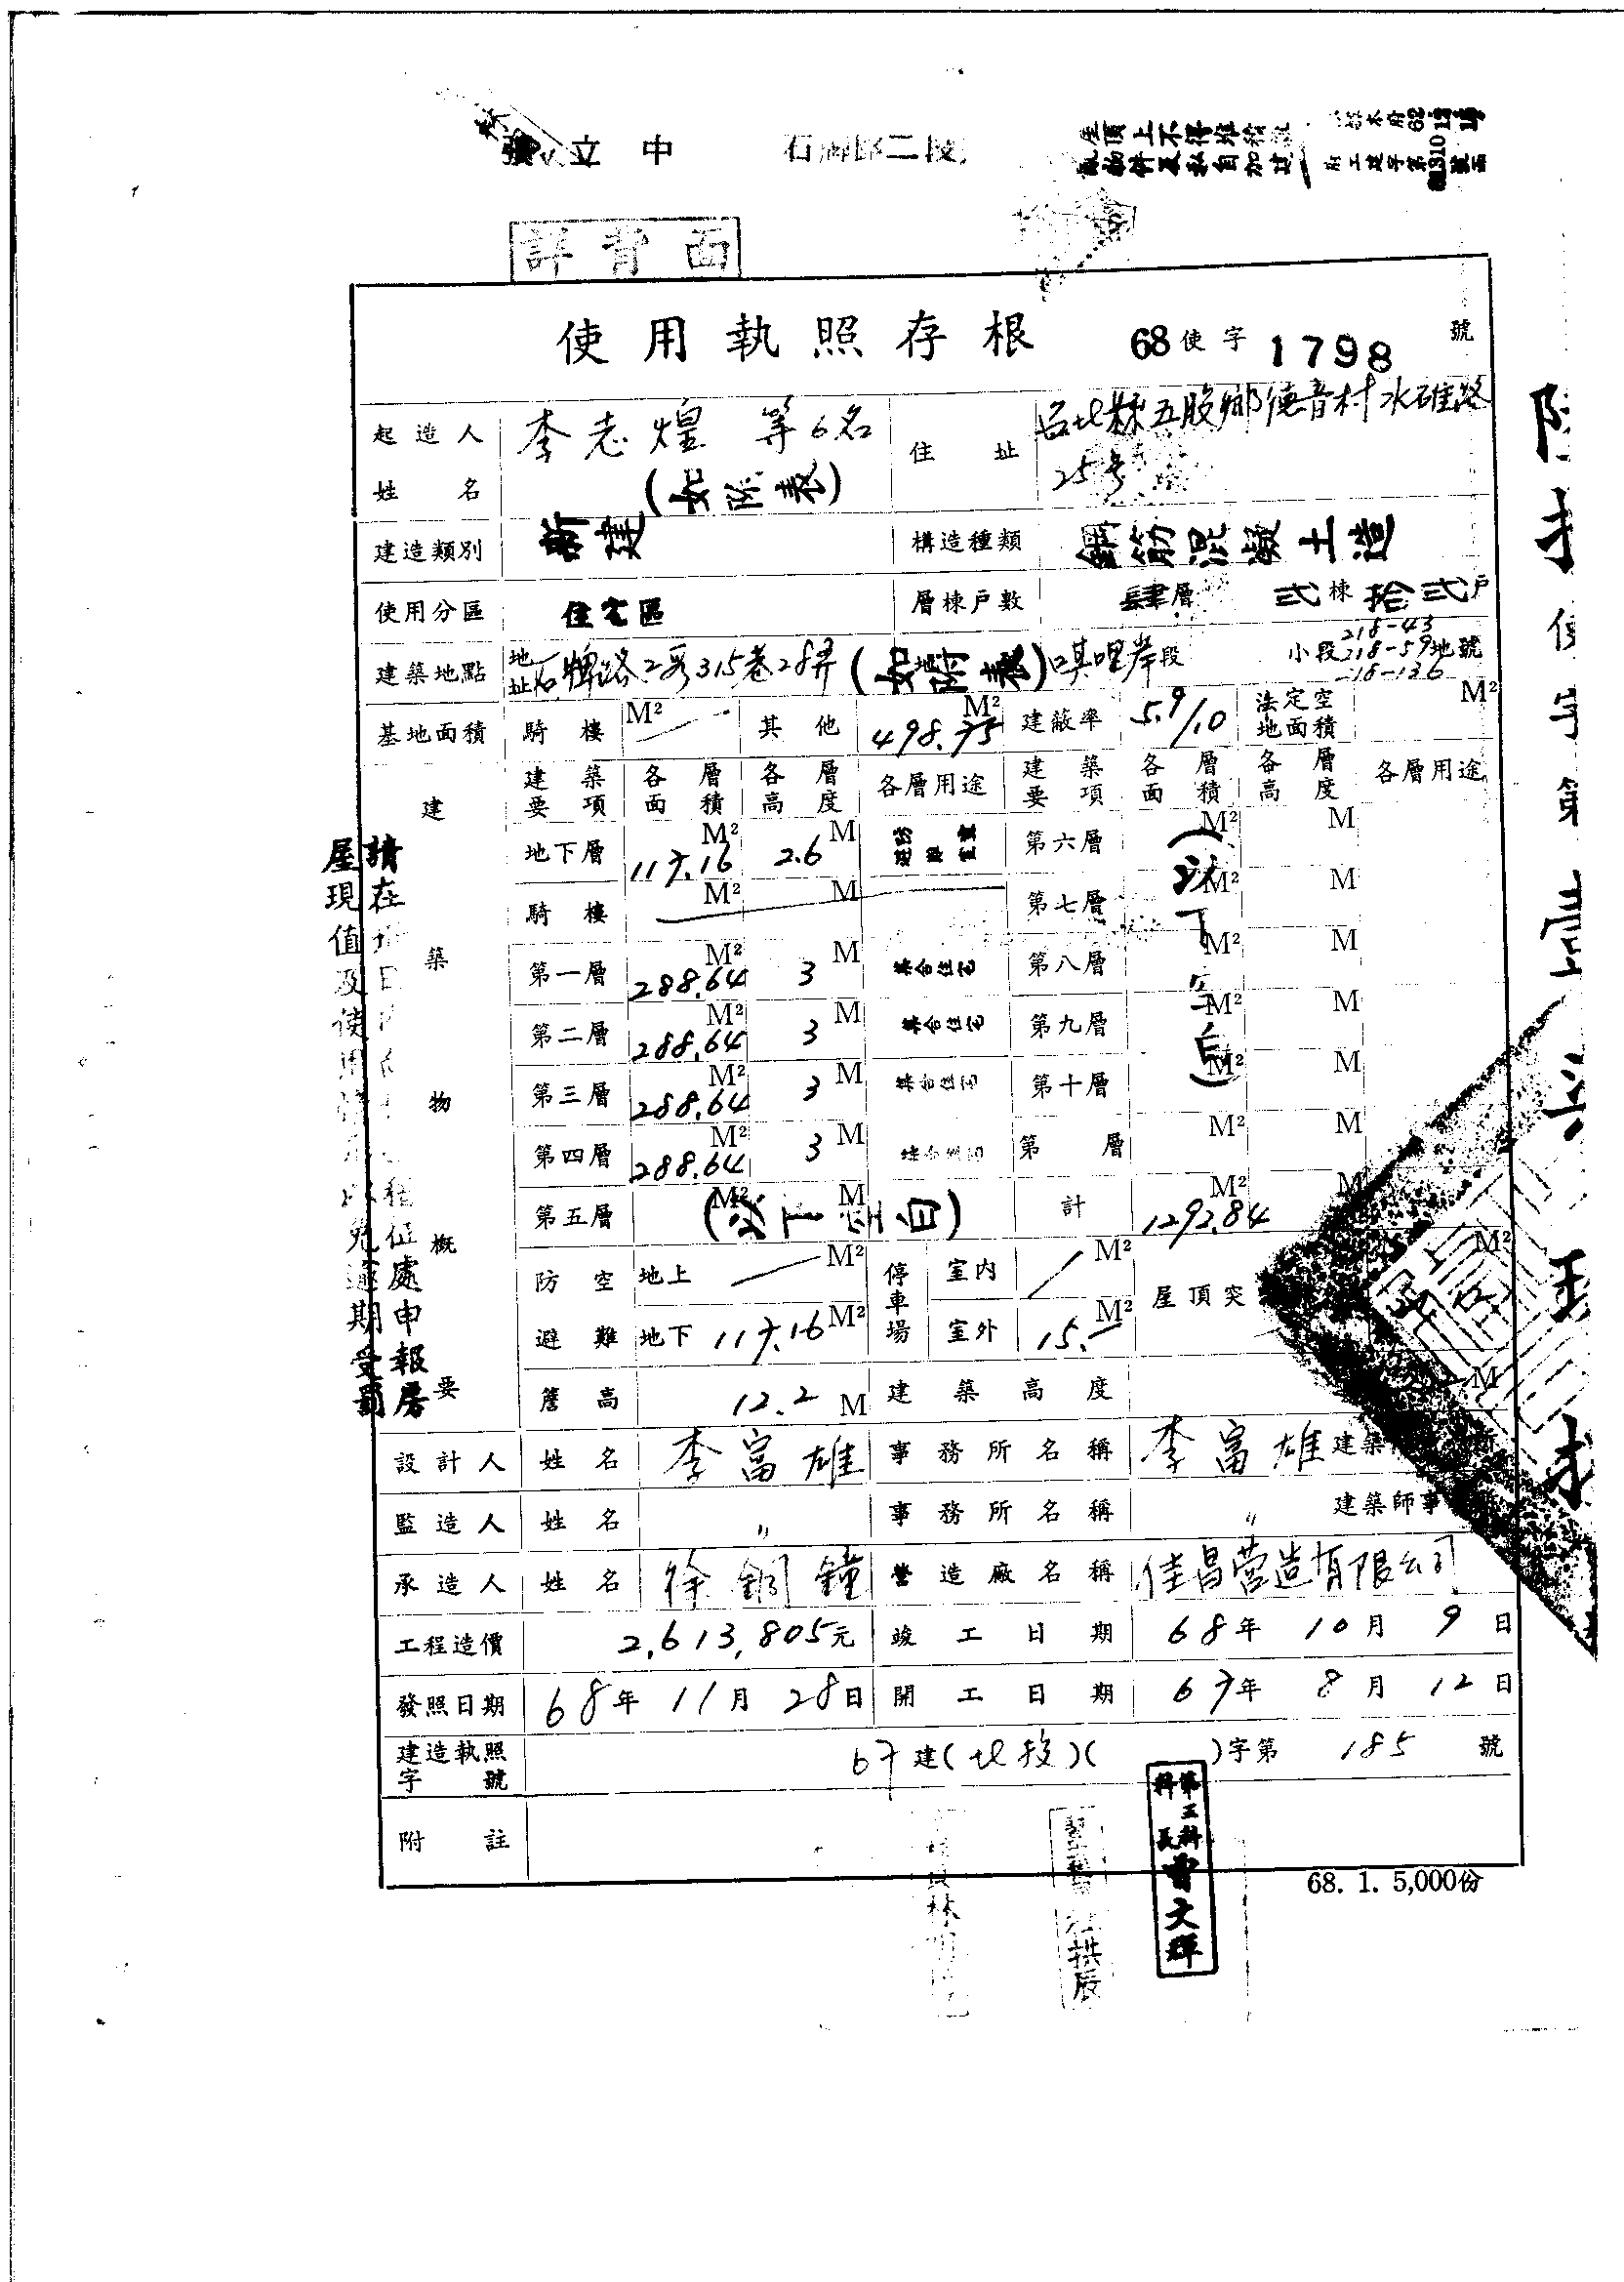 立中
屋頂上不得堆積
詳背面
使用執照存根 68使字1798號
起造人姓名 李志煌 等6名 (如附表) 住址 台北縣五股鄉德音村水碓路25号
建造類別 新建 構造種類 鋼筋混凝土造
使用分區 住宅區 層棟戶數 肆層 弍棟拾弍戶
建築地點 地址 石牌路二段315巷28弄 (如附表) 唭哩岸段 小段 218-43 218-59 地號
基地面積 騎樓 M² 其他 498.75 M² 建蔽率 5.9/10 法定空地面積 M²
建築物概要
建築要項 各層面積 各層高度 各層用途 建築要項 各層面積 各層高度 各層用途
地下層 117.16 M² 2.6 M 第六層 M² M
騎樓 M² M 第七層 M² M
第一層 288.64 M² 3 M 集合住宅 第八層 M² M
第二層 288.64 M² 3 M 集合住宅 第九層 M² M
第三層 288.64 M² 3 M 第十層 M² M
第四層 288.64 M² 3 M 第 層 M² M
第五層 M² M (以下空白) 計 1292.84 M² M
(以下空白)
防空避難 地上 M² 停車場 室內 M² 屋頂突 M²
地下 117.16 M² 室外 15.— M²
簷高 12.2 M 建築高度 M
設計人 姓名 李富雄 事務所名稱 李富雄 建築
監造人 姓名 〃 事務所名稱 〃 建築師事
承造人 姓名 徐銅鐘 營造廠名稱 佳昌營造有限公司
工程造價 2,613,805元 竣工日期 68年10月9日
發照日期 68年11月28日 開工日期 67年8月12日
建造執照字號 67建(北投)( )字第 185 號
附註
68. 1. 5,000份
處申報房
屋現值及使
免逾期受罰